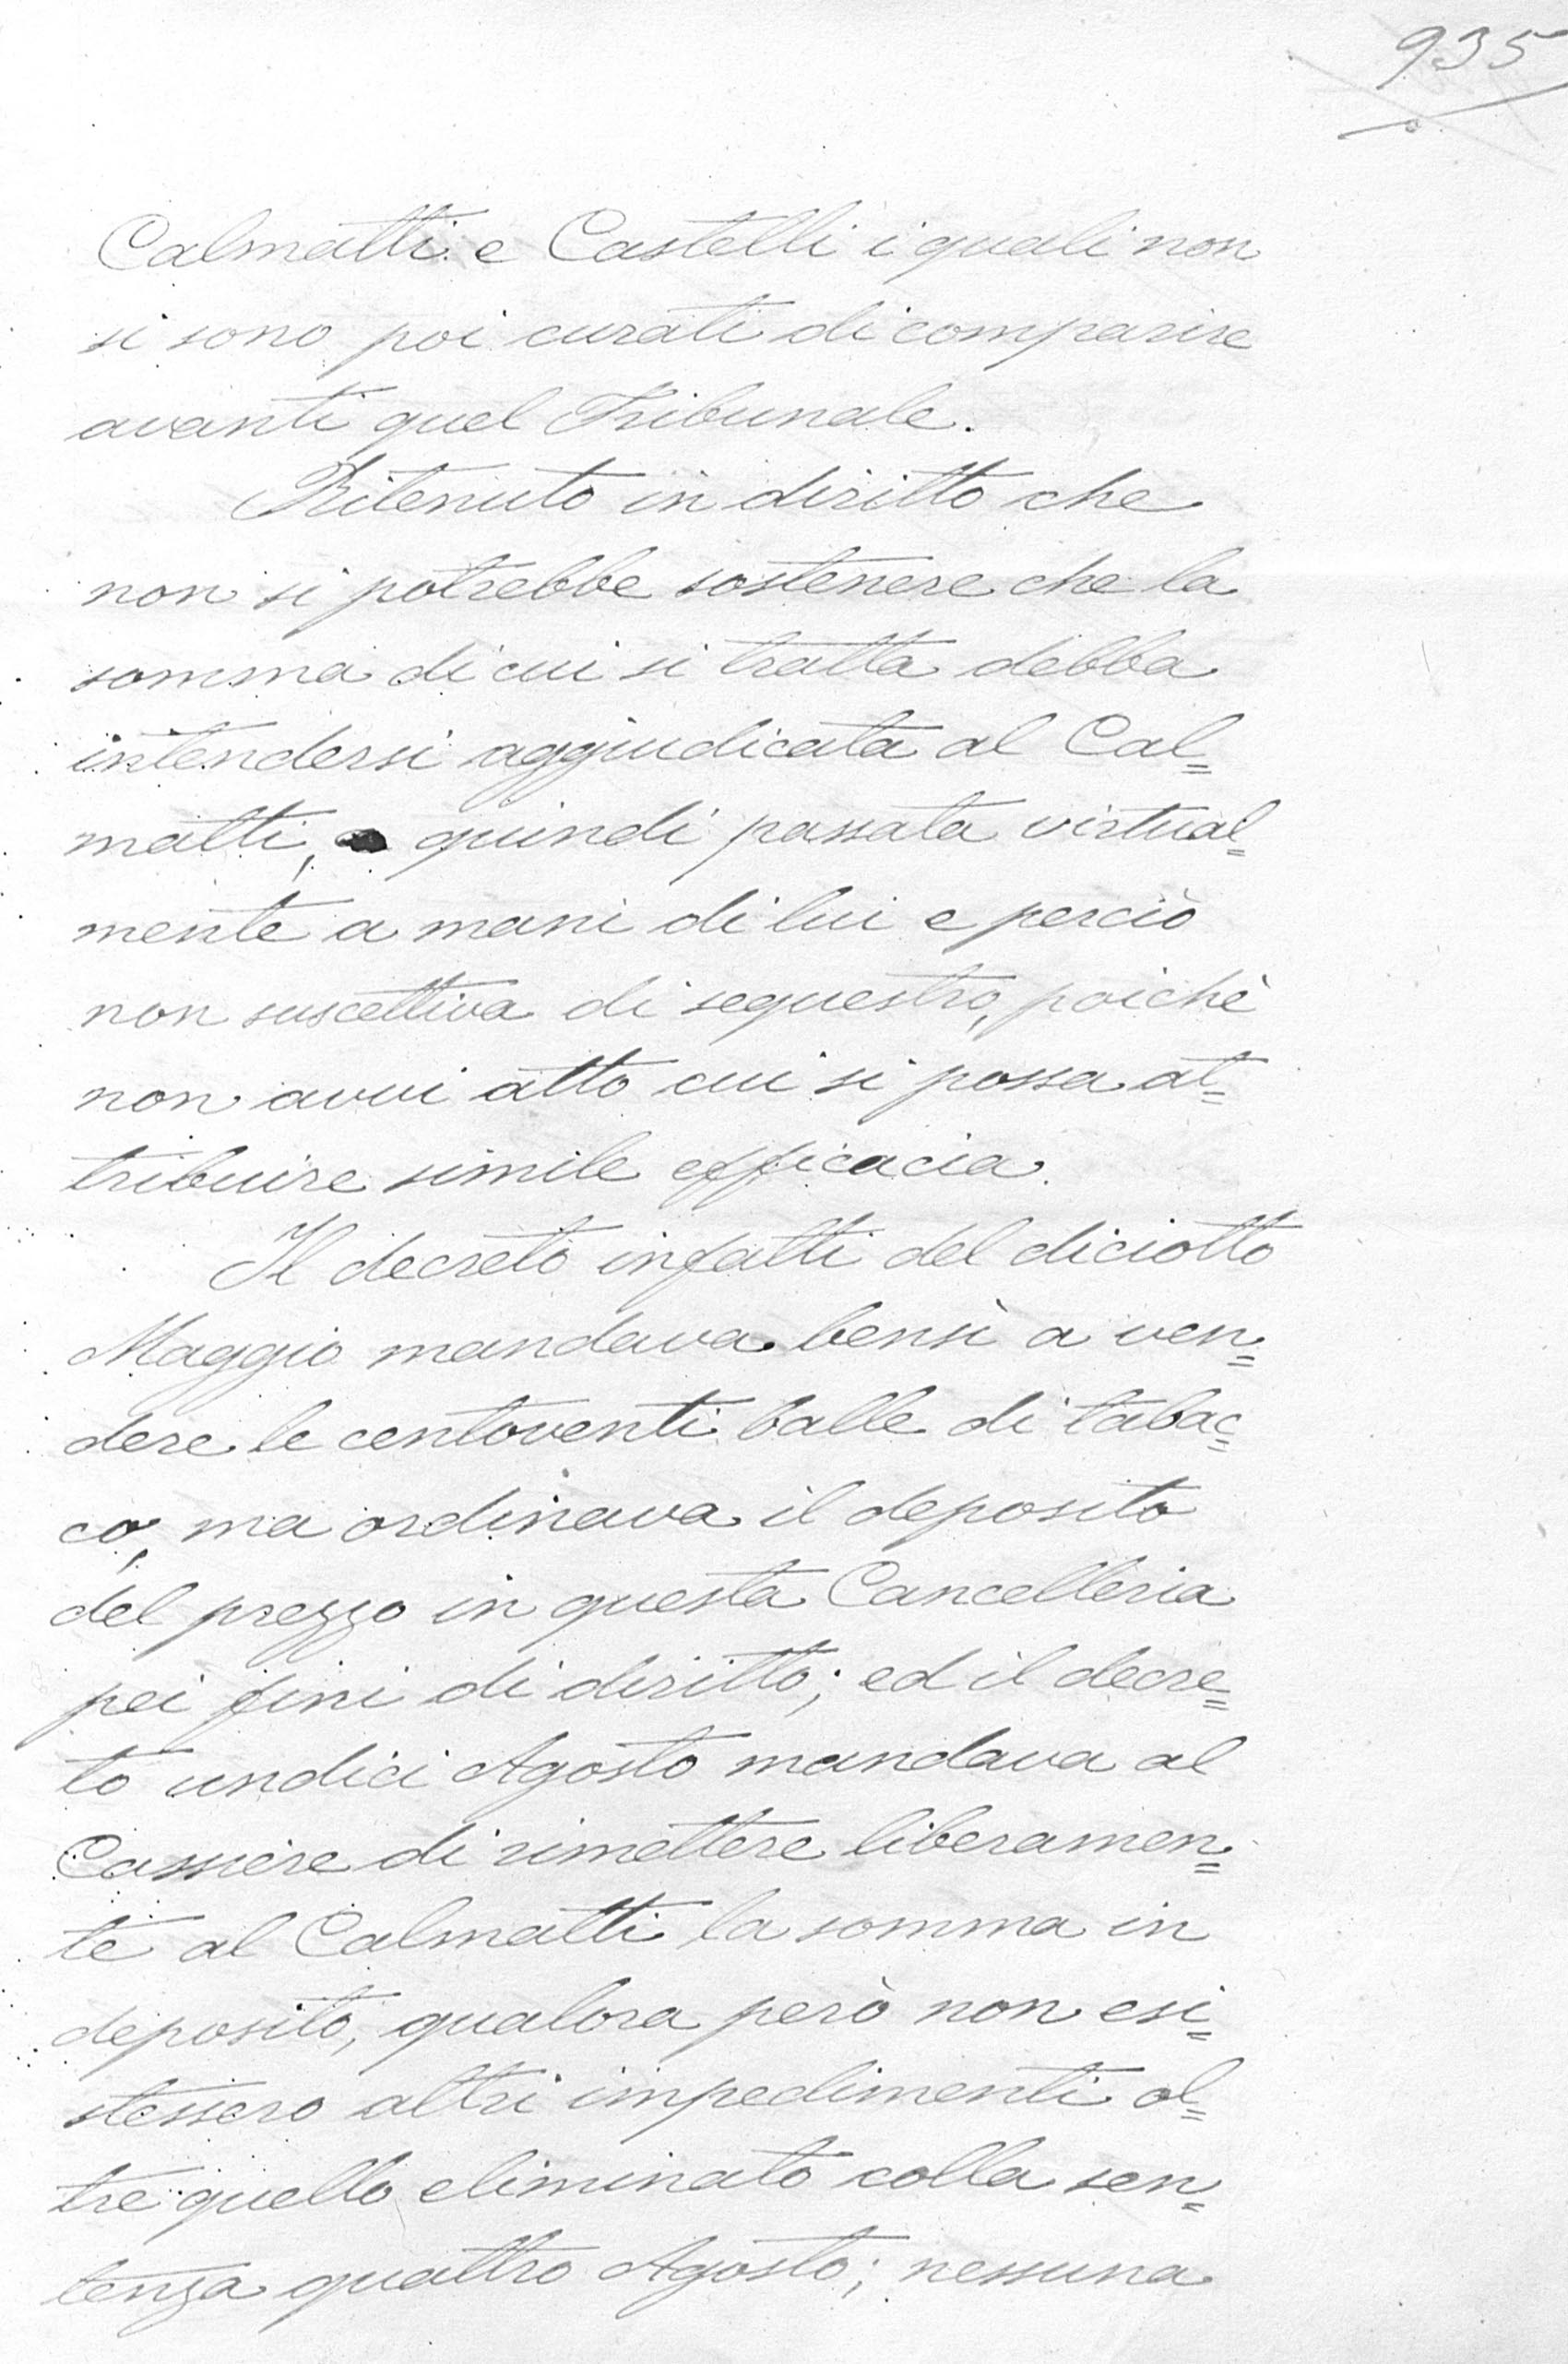 935
Calmatti e Castelli i quali non
si sono poi curati di comparire
avanti quel Tribunale.
Ritenuto in diritto che
non si potrebbe sostenere che la
somma di cui si tratta debba
intendersi aggiudicata al Cal=
matti, quindi passata virtual=
mente a mani di lui e perciò
non suscettiva di sequestro, poichè
non avvi atto cui si possa at=
tribuire simile efficacia.
Il decreto infatti del diciotto
Maggio mandava bensì a ven=
dere le centoventi balle di tabac=
co, ma ordinava il deposito
del prezzo in questa Cancelleria
pei fini di diritto; ed il decre=
to undici Agosto mandava al
Cassiere di rimettere liberamen=
te al Calmatti la somma in
deposito, qualora però non esi=
stessero altri impedimenti ol=
tre quello eliminato colla sen=
tenza quattro Agosto; nessuna